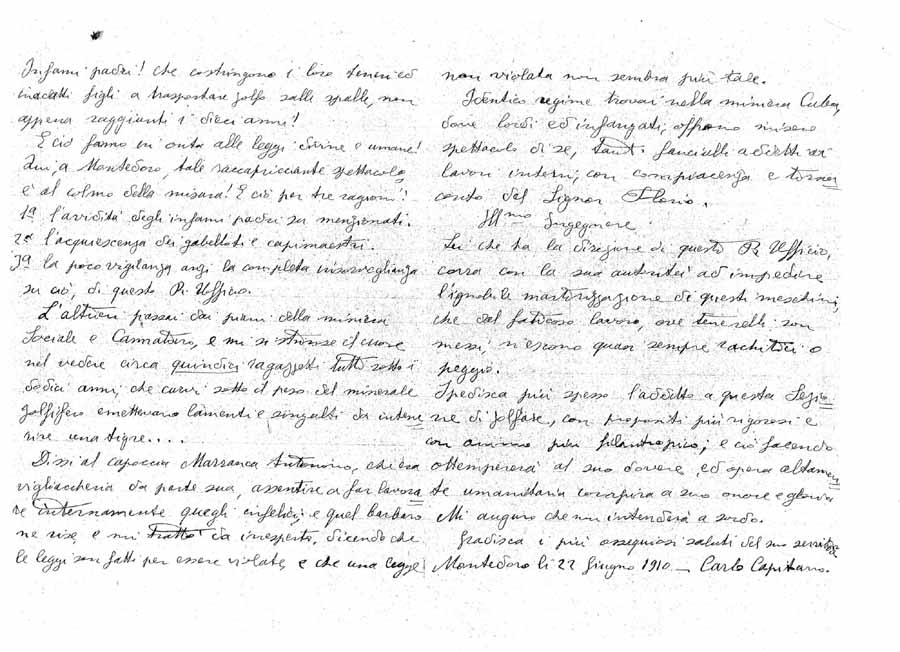 Infami padri! che costringono i loro teneri ed
inadatti figli a trasportare zolfo sulle spalle, non
appena raggianti i dieci anni!
E ciò fanno in onta alle leggi divine e umane!
Qui, a Montedoro, tale raccapricciante spettacolo,
è al colmo della misura! E ciò per tre ragioni!
1ª l'avidità degli infami padri su menzionati.
2ª l'acquiescenza dei gabelloti e capimaestri.
3ª la poco vigilanza anzi la completa insorveglianza
su ciò, di questo R. Ufficio.
L'altrieri passai dai piani della miniera
Sociale e , e mi si strinse il cuore
nel vedere circa quindici ragazzetti tutti sotto i
dodici anni, che curvi sotto il peso del minerale
zolfifero emettevano lamenti e singulti da intene=
rire una tigre....
Dissi al capoccia Marranca Antonino, ch'era
vigliaccheria da parte sua, assentire a far lavora=
re internamente quegli infelici, e quel barbaro
ne rise, e mi trattò da inesperto, dicendo che
le leggi son fatti per essere violate, e che una legge
non violata non sembra più tale.
Identico regime trovai nella miniera
dove lordi ed infangati, offrono misero
spettacolo di se, tanti fanciulli addetti ai
lavori interni, con compiacenza e torna=
conto del Signor Florio.
Ill.mo Ingegnere
Lei che ha la direzione di questo R. Ufficio,
corra con la sua autorità ad impedire
l'ignobile martirizzazione di questi meschini,
che dal faticoso lavoro, ove tenerelli son
messi, n'escono quasi sempre rachitici o
peggio.
Spedisca più spesso l'addetto a questa Sezio=
ne di zolfare, con propositi più rigorosi e
con animo più filantropico; e ciò facendo
ottempererà al suo dovere, ed opera altamen=
te umanitaria compirà a suo onore e gloria
Mi auguro che non intenderà a sordo.
Gradisca i più ossequiosi saluti del suo servitore
Montedoro li 22 Giugno 1910 — Carlo Capitano.